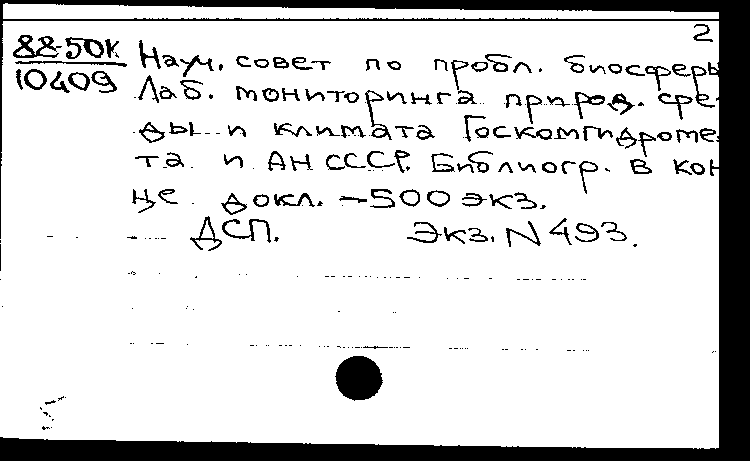 2
88-50К Науч. совет по пробл. биосферы
10409 Лаб. мониторинга природ. сре-
ды и климата Госкомгидроме
та и АН СССР. Библиогр. в кон
це докл. – 500 экз.
ДСП. Экз. N 493.